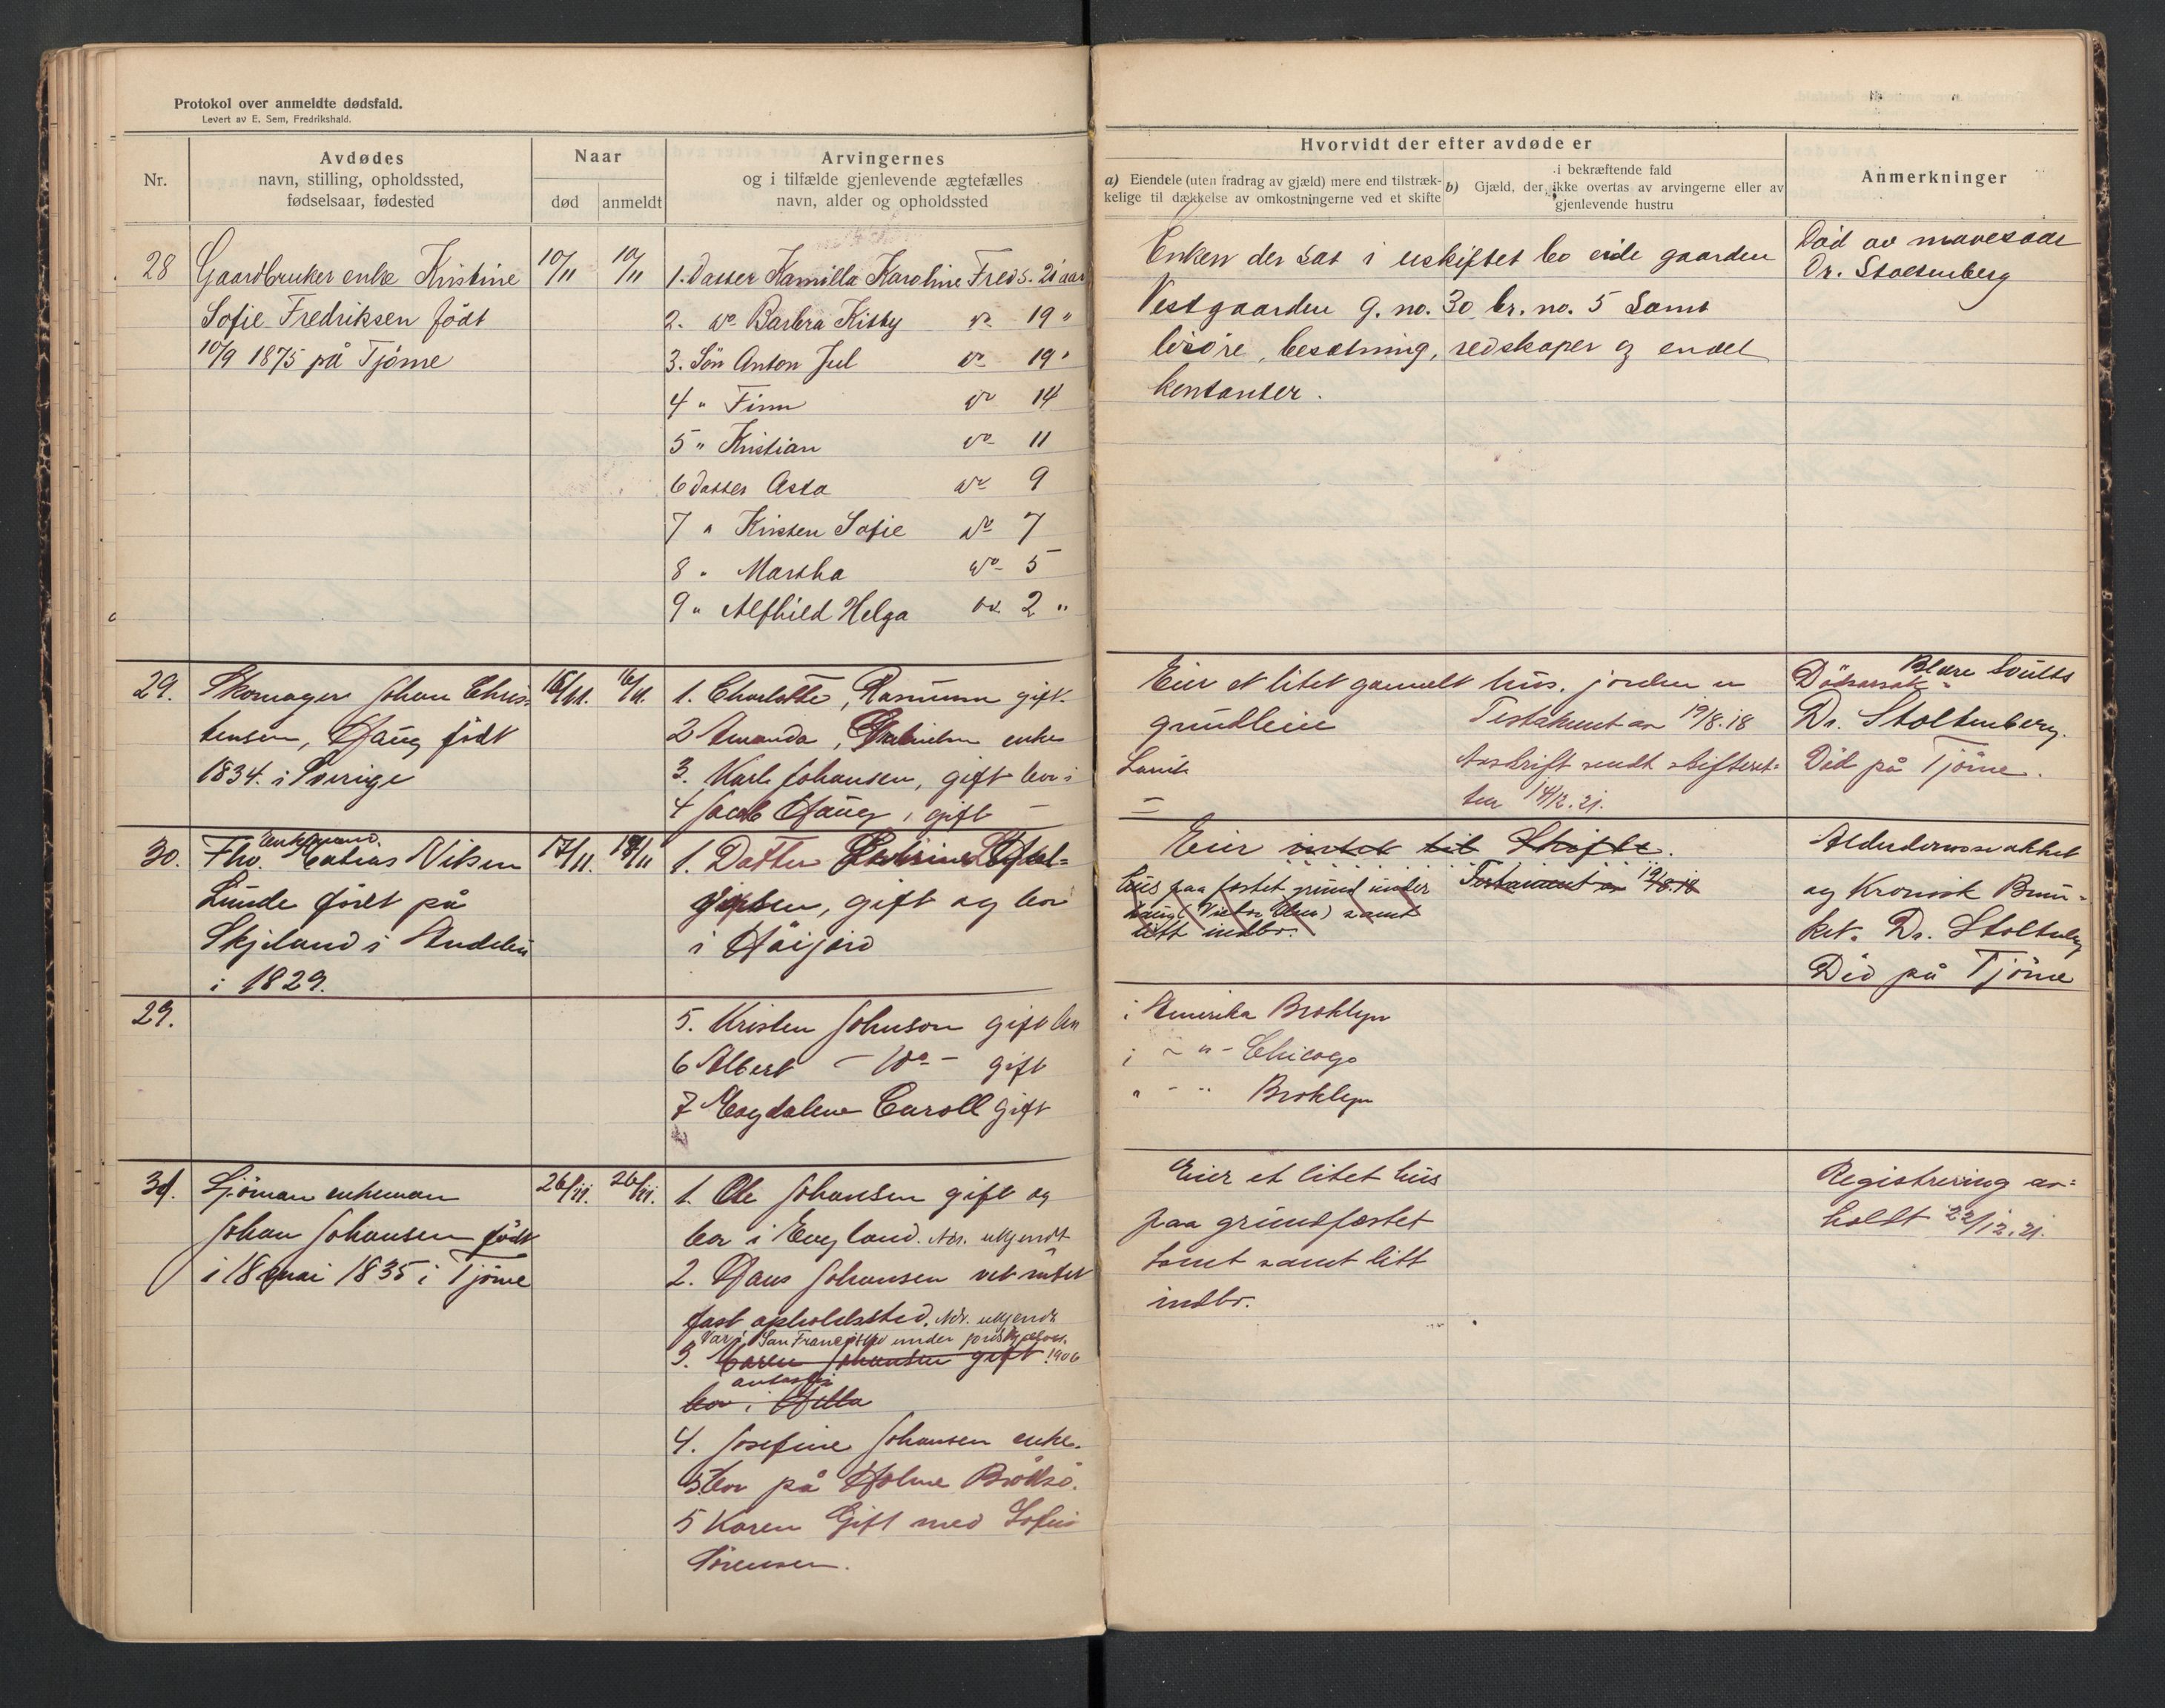 Protokol over anmeldte dødsfald.
Levert av E. Sem, Fredrikshald.
Nr.
Avdødes
navn, stilling, opholdssted,
fødselsaar, fødested
Naar
død
anmeldt
Arvingernes
og i tilfælde gjenlevende ægtefælles
navn, alder og opholdssted
Hvorvidt der efter avdøde er
a) Eiendele (uten fradrag av gjæld) mere end tilstræk-
kelige til dækkelse av omkostningerne ved et skifte
i bekræftende fald
b) Gjæld, der ikke overtas av arvingerne eller av
gjenlevende hustru
Anmerkninger
28
Gaardbruker enke Kristine
Sofie Fredriksen født
10/9 1875 på Tjöme
10/11
10/11
1. Datter Kamilla Karoline Freds. 21 aar
2. do Barbra Kitty do 19 "
3. Sön Anton Jul do 19 "
4 " Finn do 14
5 " Kristian do 11
6 Datter Asta do 9
7 " Kirsten Sofie do 7
8 " Martha do 5
9 " Alfhild Helga do 2 "
Enken der sat i uskiftet bo eide gaarden
Vestgaarden g. no. 30 br. no. 5 samt
lösöre, besætning, redskaper og endel
kontanter.
Död av mavesaar
Dr. Stoltenberg
29.
Skomager Johan Chris-
tensen, Haug födt
1834. i Sverige
16/11.
16/11.
1. Charlotte, Rasmussen gift
2 Amanda, enke
3. Karl Johansen, gift bor i
4 Jacob Haug, gift —
Eier et litet gamalt hus. jorden er
grundleie
Testament av 19/8.18
Avskrift sendt skifteret-
ten 14/12.21.
Larvik
Dödsarsak Blære
Dr. Stoltenberg.
Död på Tjöme.
30.
Fhv. enkemand Matias Nilsen
Lunde födt på
Skjeland i Andebu
i 1829.
17/11.
18/11
1. Datter
gift og bor
i Höijord
Eier intet til Skifte.
Hus paa festet grund under
Haug (Victor Olsen) samt
litt indbo.
Testament av 19/8.18
Alderdomssvakhet
og Kronisk Bron-
kit. Dr. Stoltenberg
Död på Tjöme
29.
5. Kristen Johnson gift bor
6 Albert — do — gift
7 Magdalene Caroll gift
i Amerika Broklyn
i — " — Chicago
" — " Broklyn
31.
Sjöman enkeman
Johan Johansen födt
i 18 mai 1835 i Tjöme
26/11.
26/11.
1. Ole Johansen gift og
bor i England. Adr. ukjendt
2. Hans Johansen vet intet
fast opholdssted. Adr. ukjendt
Var i San Francisco under jordskjælvet
1906
3. Karen Johansen gift
bor i Hilla
4. Josefine Johansen enke.
bor på Holme Brötsö.
5 Karen Gift med Sofus
Sörensen.
Eier et litet hus
paa grundfæstet
tomt samt litt
indbo.
Registrering av-
holdt 22/12.21.